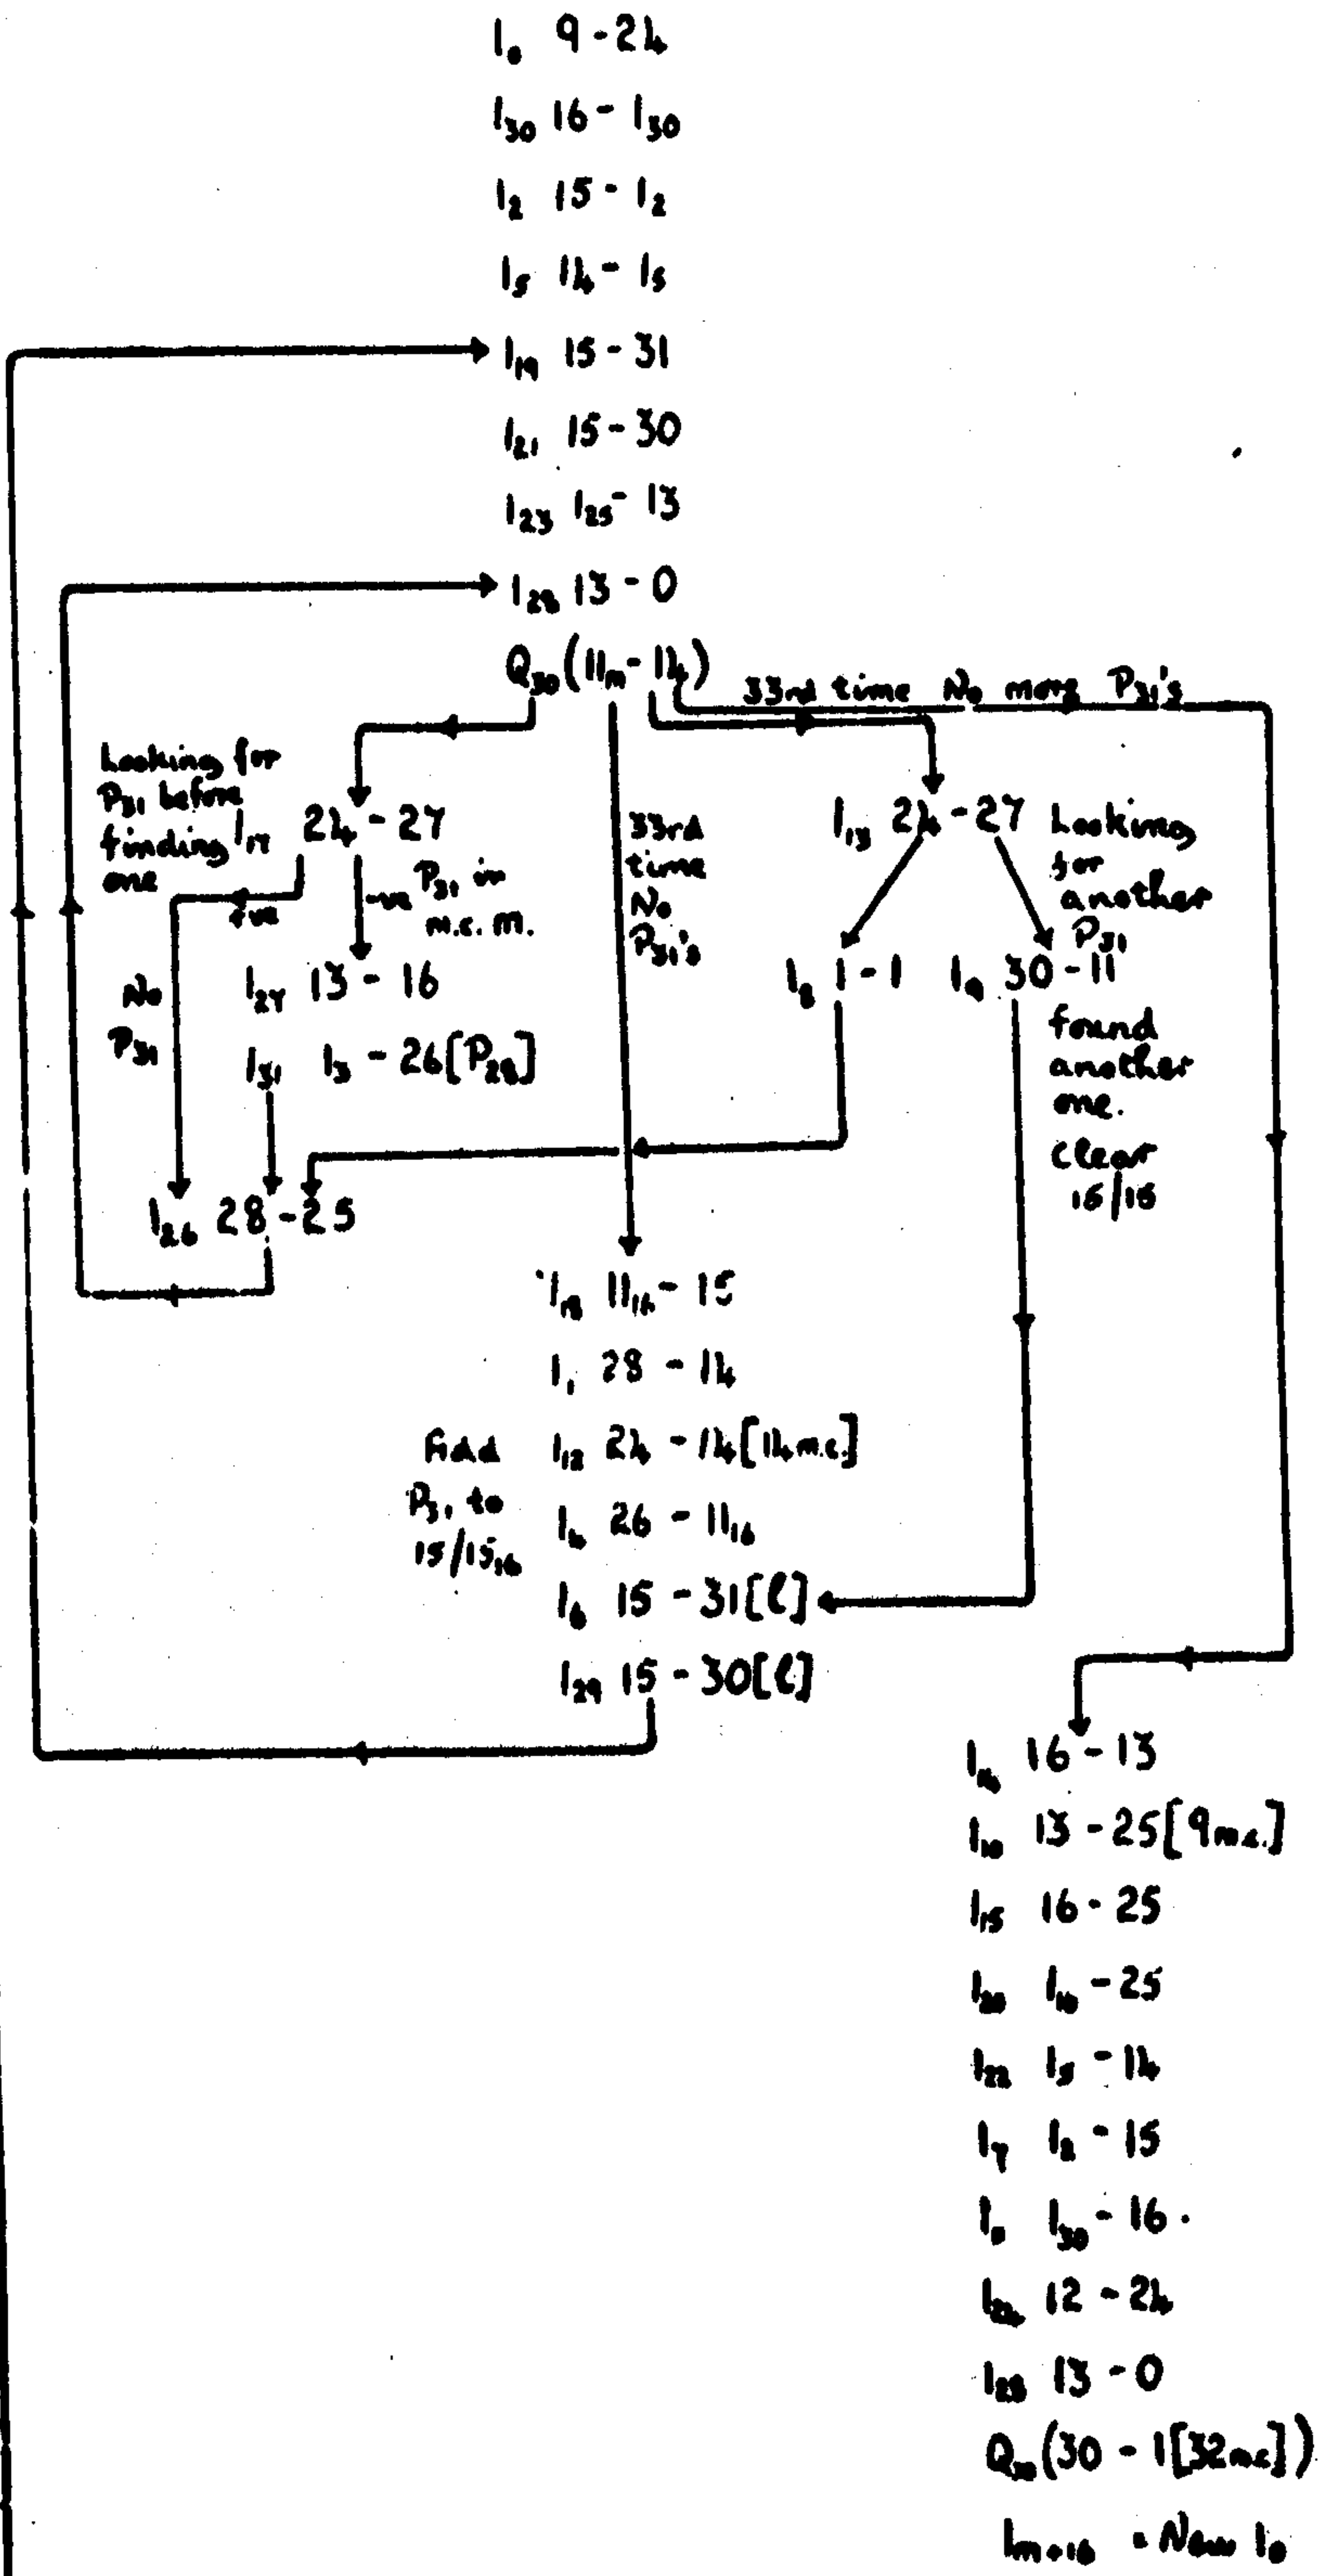 1₀ 9-24
1₃₀ 16 - 1₃₀
1₂ 15 - 1₂
1₅ 14 - 1₅
1₁₉ 15 - 31
1₂₁ 15 - 30
1₂₃ 1₂₅ - 13
1₂₈ 13 - 0
Q₃₀ (11ₘ - 14)
33rd time No more P₃₁'s
Looking for
P₃₁ before
finding
one
1₁₇ 24 - 27
+ve
-ve
P₃₁ in
m.c.m.
No
P₃₁
1₂₇ 13 - 16
1₃₁ 1₃ - 26 [P₂₈]
1₂₆ 28 - 25
33rd
time
No
P₃₁'s
1₁₃ 24 - 27
Looking
for
another
P₃₁
1₈ 1 - 1
1₉ 30 - 11
found
another
one.
clear
15/15
1₁₈ 11₁₆ - 15
1₁ 28 - 14
Add
P₃₁ to
15/15₁₆
1₁₂ 24 - 14 [14 m.c.]
1₄ 26 - 11₁₆
1₆ 15 - 31 [l]
1₂₉ 15 - 30 [l]
16 - 13
1₁₀ 13 - 25 [9 m.c.]
1₁₅ 16 - 25
1₂₀ 1₁₀ - 25
1₂₂ 1₅ - 14
1₇ 1₂ - 15
1₃₀ - 16
1₂₄ 12 - 24
13 - 0
Q₃₀ (30 - 1 [32 m.c])
1ₘ₊₁₆ = New 1₀